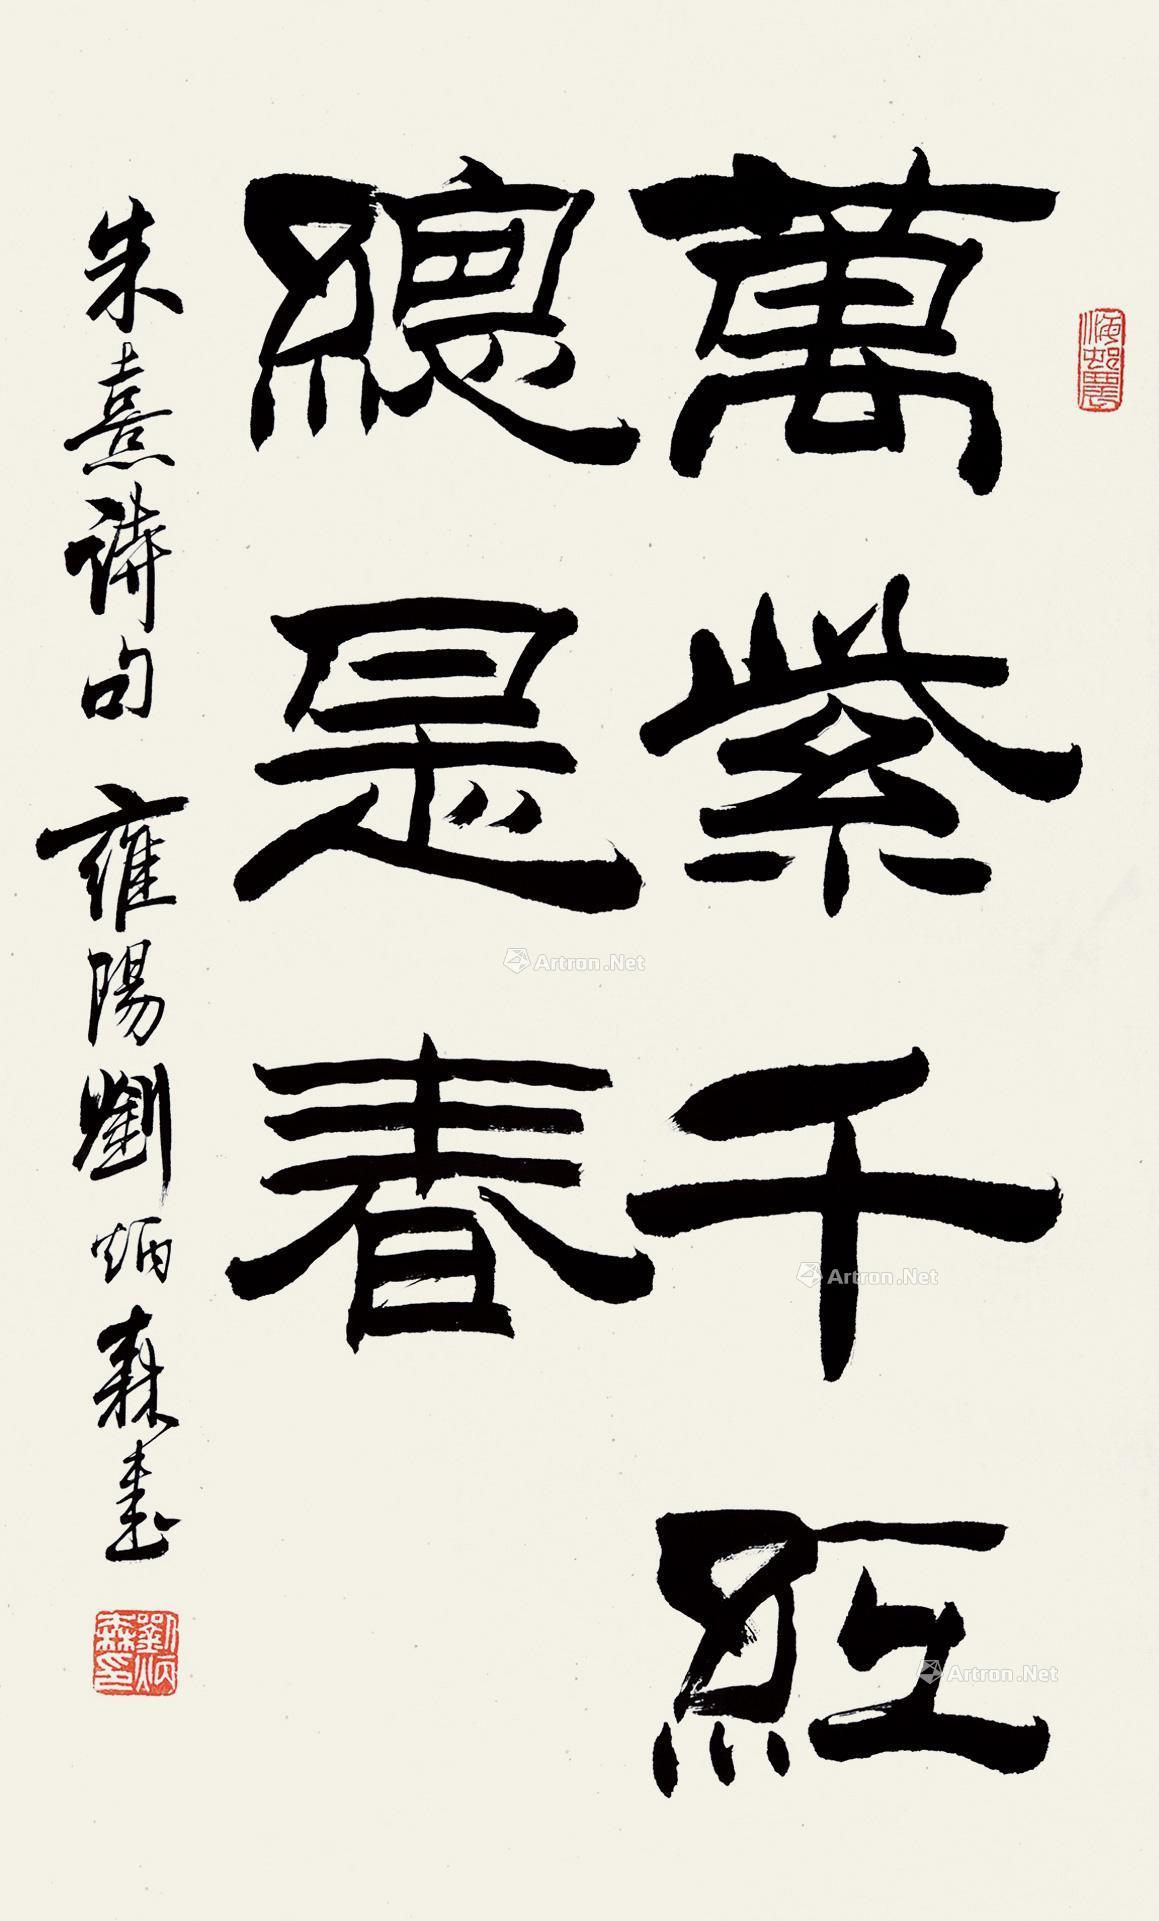 萬紫千紅
總是春
朱熹詩句 雍陽劉炳森書
海邨農
劉炳森印
Artron.Net
Artron.Net
Artron.Net